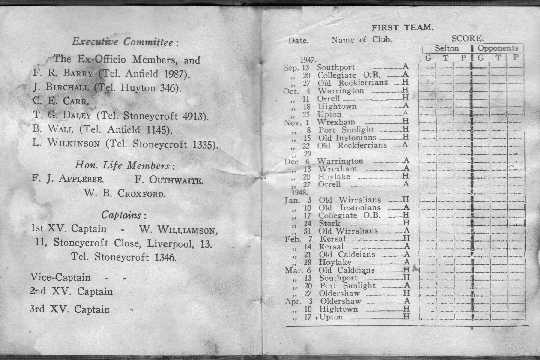 Executive Committee :
The Ex-Officio Members, and
F. R. BARRY (Tel. Anfield 1987).
J. BIRCHALL (Tel. Huyton 346).
C. E. CARR.
T. G. DALEY (Tel. Stoneycroft 4913).
B. WALL (Tel. Anfield 1145).
L. WILKINSON (Tel. Stoneycroft 1335).
Hon. Life Members :
F. J. APPLEBEE. F. OUTHWAITE.
W. B. CROXFORD.
Captains :
1st XV. Captain - W. WILLIAMSON,
11, Stoneycroft Close, Liverpool, 13.
Tel. Stoneycroft 1346.
Vice-Captain - -
2nd XV. Captain
3rd XV. Captain -
FIRST TEAM.
Date. Name of Club. SCORE.
Sefton Opponents
G T P G T P
1947.
Sep. 13 Southport A
„ 20 Collegiate O.B. A
„ 27 Old Rockferrians H
Oct. 4 Warrington H
„ 11 Orrell H
„ 18 Hightown A
„ 25 Upton A
Nov. 1 Wrexham H
„ 8 Port Sunlight H
„ 15 Old Instonians H
„ 22 Old Rockferrians A
„ 29
Dec 6 Warrington A
„ 13 Wrexham A
„ 20 Hoylake H
„ 27 Orrell A
1948.
Jan. 3 Old Wirralians H
„ 10 Old Instonians A
„ 17 Collegiate O.B. H
„ 24 Stork H
„ 31 Old Wirralians A
Feb. 7 Kersal H
„ 14 Kersal A
„ 21 Old Caldeians A
„ 28 Hoylake A
Mar. 6 Old Caldeians H
„ 13 Southport H
„ 20 Port Sunlight A
„ 27 Oldershaw H
Apr. 3 Oldershaw A
„ 10 Hightown H
„ 17 Upton H